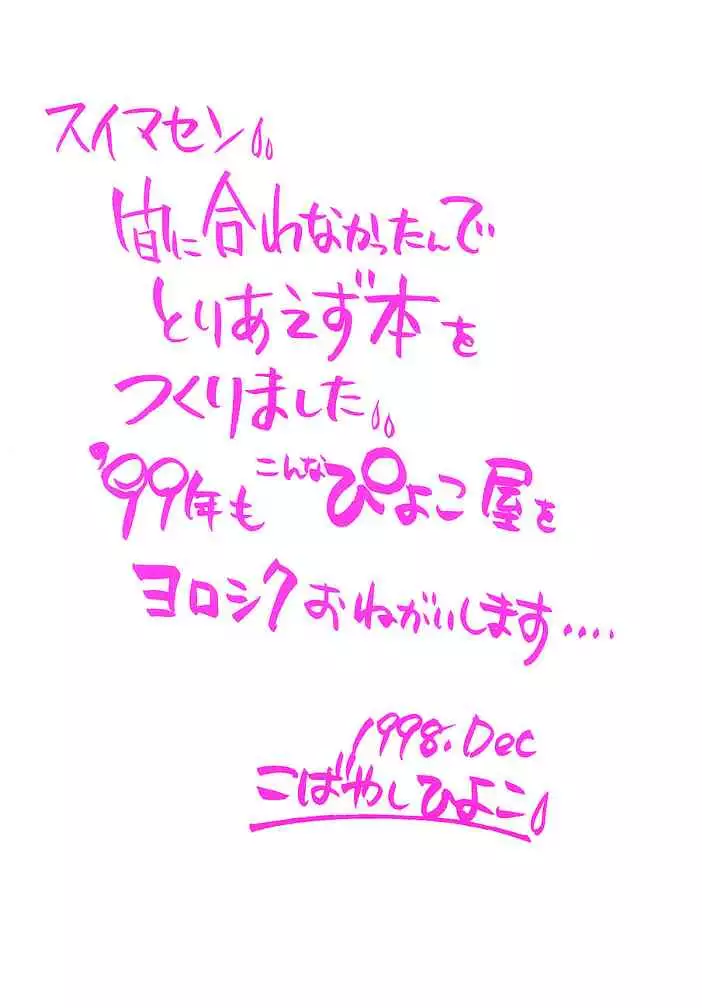 スイマセン
間に合わなかったんで
とりあえず本を
つくりました
'99年もこんなぴよこ屋を
ヨロシクおねがいします‥‥
1998.Dec
こばやしひよこ